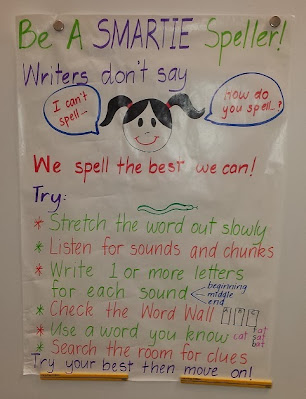 Be A SMARTIE Speller!
Writers don't say
I can't
spell...
How do
you spell...?
We spell the best we can!
Try:
* Stretch the word out slowly
* Listen for sounds and chunks
* Write 1 or more letters
for each sound
beginning
middle
end
* Check the Word Wall
* Use a word you know
cat
rat
sat
bat
* Search the room for clues
Try your best then move on!